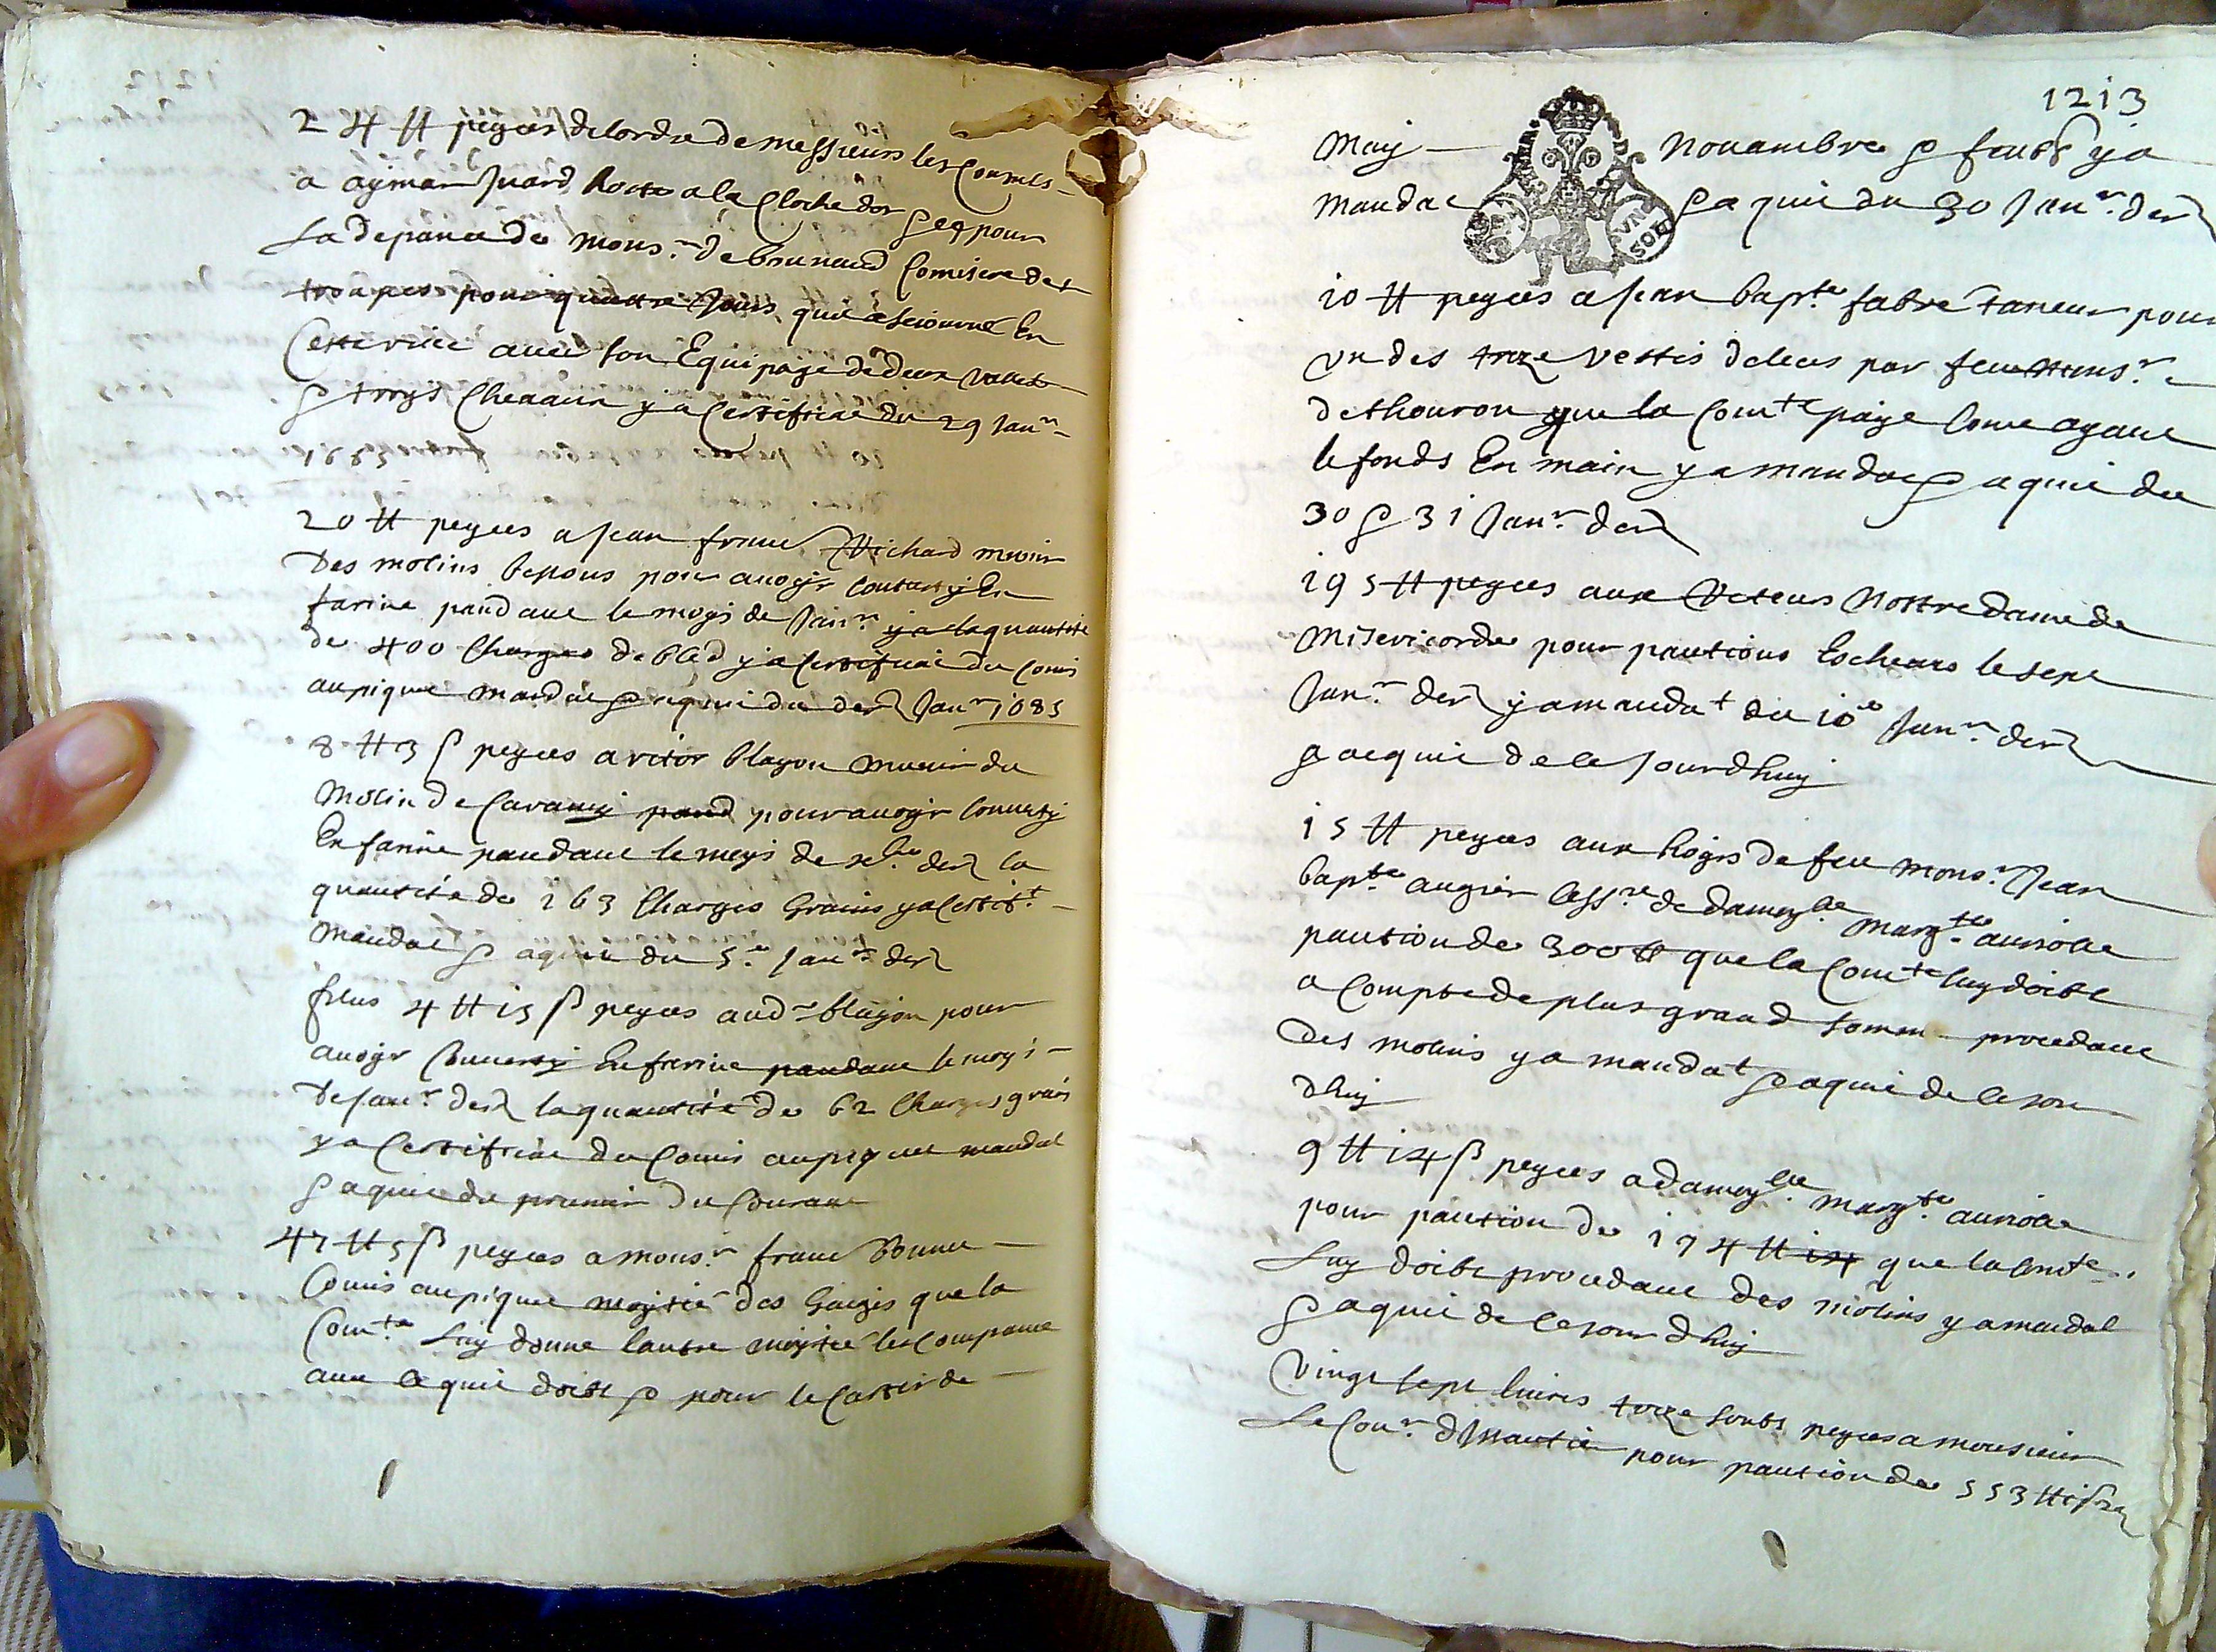 24 ₶ peyees de lordre de messieurs les Consuls
a aÿmar Juard hoste a la Cloche dor & e pour
La depance de mons.r de brunaud Comisere des
troupes pour quattre Jours quil a seiourné En
Cette ville avec son Equipage de deux vallets
& troys Chevaux y a Certificat du 29 Jan.r
1685
20 ₶ peyees a Jean franc Richard munir
Des molins bessons pour avoyr Convertÿ En
farine pandant le moys de Jan.r la quantité
de 400 Charges de bled y a Certificat du Comis
au pique mandat & aquit du der Jan.r 1685
8 ₶ 3 ß peyees a vitor blayon munir du
Molin de Caramy pour avoyr Convertÿ
En farine pandant le moys de xbre der la
quantité de 163 Charges Grains y a Certif.t
Mandat & aquit du 5.e Jan.r der
plus 4 ₶ 13 ß peyees aud.r blayon pour
avoyr Convertÿ En farine pandant le moys
de Jan.r der la quantité de 62 Charges grains
y a Certificat du Comis au pique mandat
& aquit du premier du Courant
47 ₶ 5 ß peyees a mons.r franc bonnet
Comis au pique moytié des Gages que la
Com.te Luy donne lautre moytié les Compance
avec ce quil doibt & pour le Cartir de
1213
May Novambre & fontz y a
Mandat & a quit du 30 Jan.r der
10 ₶ peyees a Jean bap.te fabre taneur pour
vn des treze vestis deleus par feu Mons.r
de thouron que la Com.te paye Come ayant
le fonds En main y a mandat & aquit du
30 & 31 Jan.r der
195 ₶ peyees aux Recteurs Nostre dame de
Misericorde pour pantions Escheues le sept
Jan.r der y a mandat du 10e Jan.r der
& acquit de ce Jourdhuy
15 ₶ peyees aux hoyrs de feu mons.r Jean
bap.te augier Cess.re de damoy.lle marg.te auriolle
pantion de 300 ₶ que la Com.te luy doibt
a Compte de plus grand somme procedant
des molins y a mandat & aquit de ce Jour
dhuy
9 ₶ 14 ß peyees a damoy.lle marg.te auriolle
pour pantion de 194 ₶ que la Com.te
Luy doibt procedant des molins y a mandat
& aquit de ce Jour dhuy
Vingt sept livres treze soubs peyees a monsieur
Le Con.r pour pantion de 553 ₶